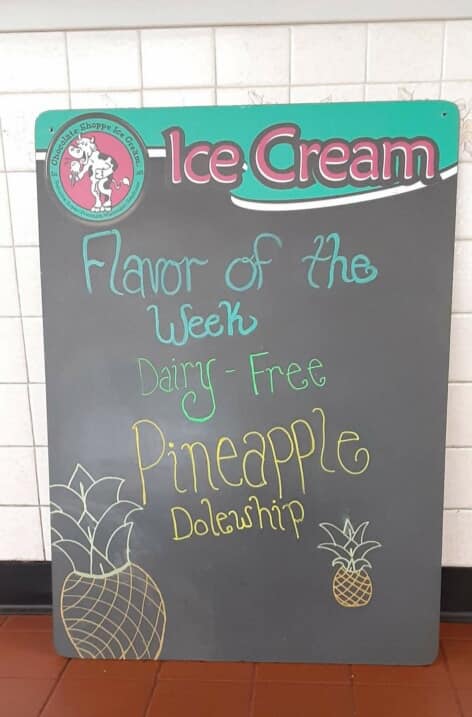 Chocolate Shoppe Ice Cream
Ice Cream
Flavor of the
Week
Dairy-Free
Pineapple
Dolewhip